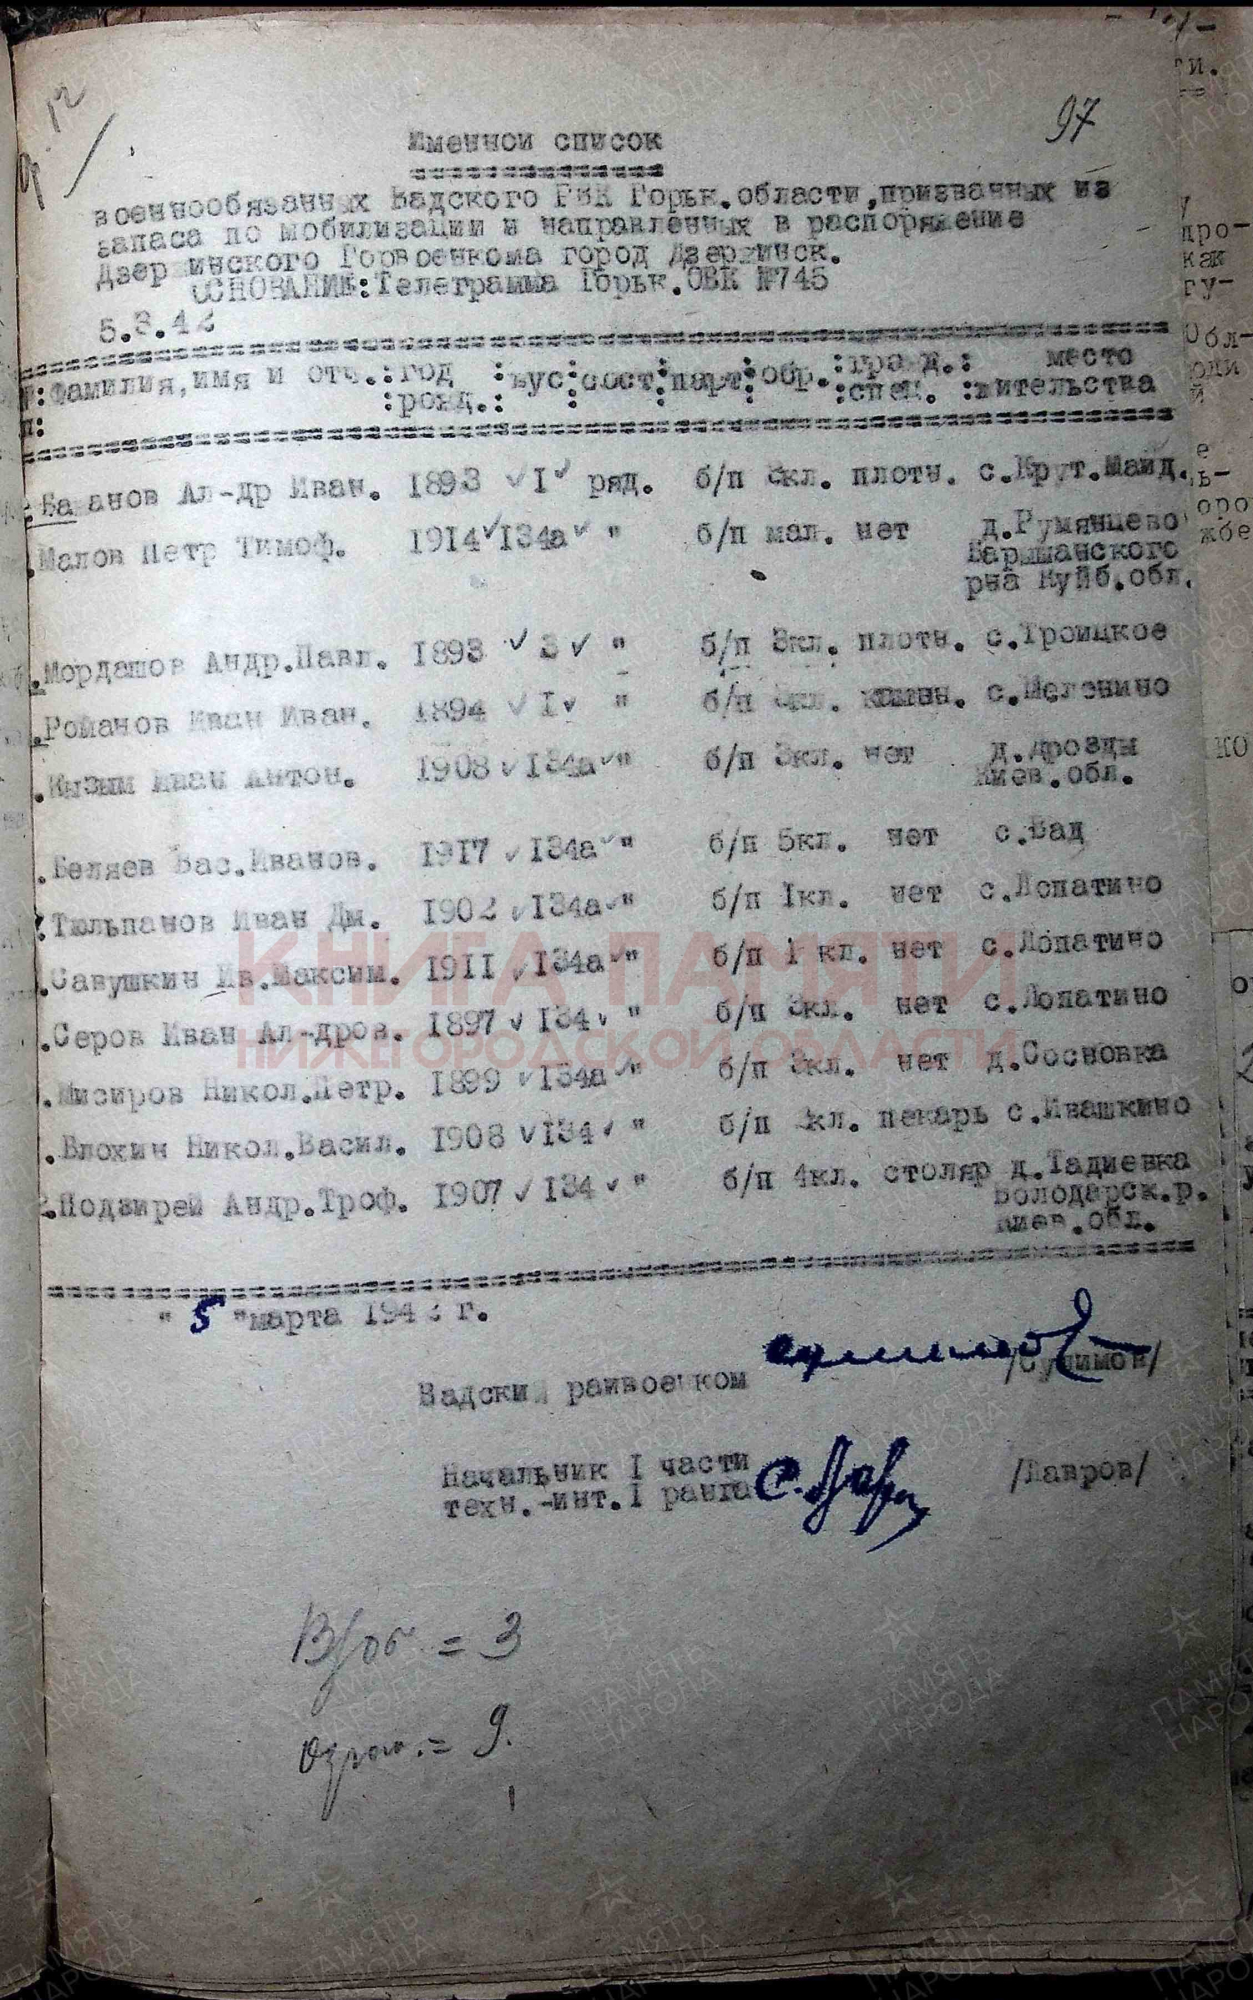 12
97
Именной список
военнообязанных Вадского РВК Горьк.области,призванных из
запаса по мобилизации и направленных в распоряжение
Дзержинского Горвоенкома город Дзержинск.
ОСНОВАНИЕ:Телеграмма Горьк.ОВК №745
5.3.42
:Фамилия,имя и отч.:год :вус:сост:парт:обр.:гражд.: место
:рожд.: :спец. :жительства
Ал-др Иван. 1893 I ряд. б/п 3кл. плотн. с.Крут.Майд.
Малов Петр Тимоф. 1914 134а " б/п мал. нет д.Румянцево
Барышанского
рна Куйб.обл.
Мордашов Андр.Павл. 1893 3 " б/п 3кл. плотн. с.Троицкое
Романов Иван Иван. 1894 I " б/п кл. с.Меленино
.Кызым Иван Антон. 1908 134а " б/п 3кл. нет д.Дрозды
Киев.обл.
.Беляев Вас.Иванов. 1917 134а " б/п 5кл. нет с.Вад
.Тюльпанов Иван Дм. 1902 134а " б/п 1кл. нет с.Лопатино
.Савушкин Ив.Максим. 1911 134а " б/п 1 кл. нет с.Лопатино
.Серов Иван Ал-дров. 1897 134 " б/п 3кл. нет с.Лопатино
.Мисиров Никол.Петр. 1899 134а " б/п 3кл. нет д.Сосновка
.Блохин Никол.Васил. 1908 134 " б/п кл. пекарь с.Ивашкино
.Подзирей Андр.Троф. 1907 134 " б/п 4кл. столяр д.Тадиевка
Володарск.р.
Киев.обл.
" 5 "марта 1942 г.
Вадский райвоенком /Сулимов/
Начальник I части
техн.-инт.I ранга /Лавров/
= 3
= 9.
КНИГА ПАМЯТИ
НИЖЕГОРОДСКОЙ ОБЛАСТИ
ПАМЯТЬ НАРОДА